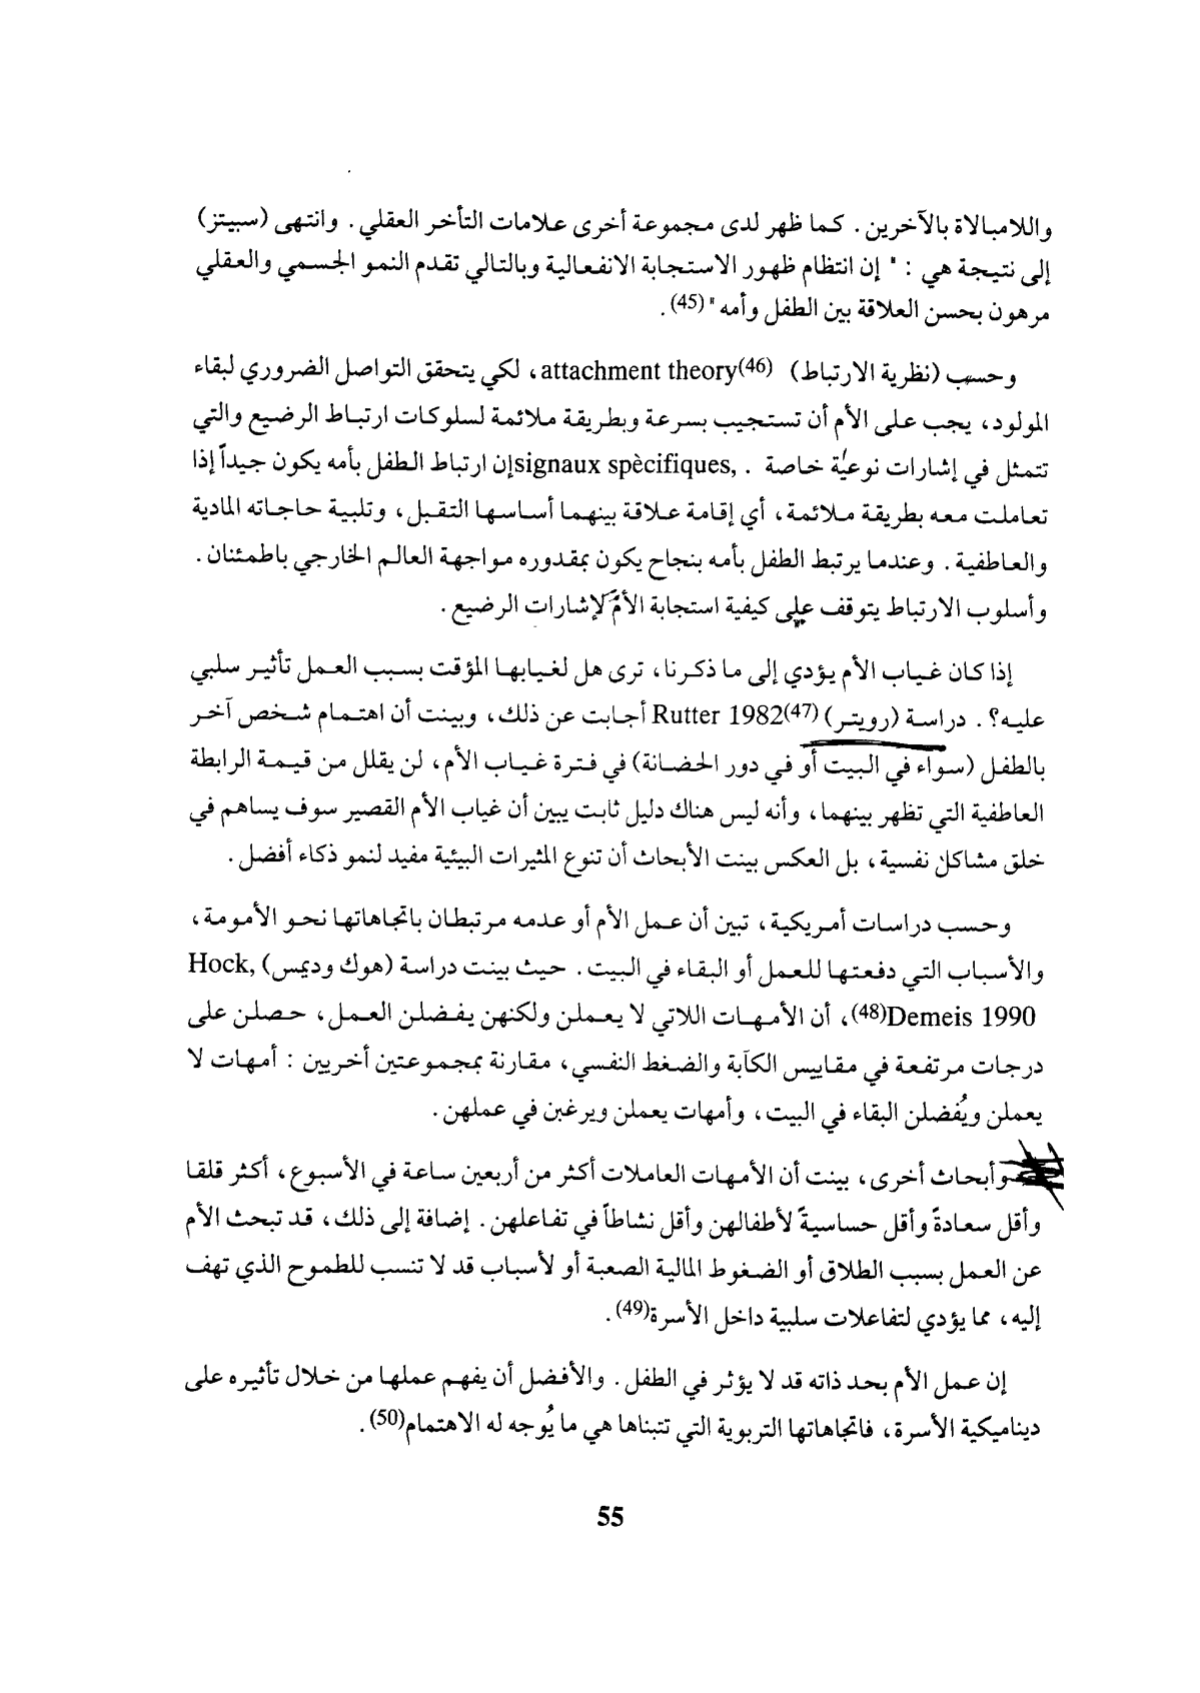 واللامبالاة بالآخرين. كما ظهر لدى مجموعة أخرى علامات التأخر العقلي. وانتهى (سبيتز)
إلى نتيجة هي : " إن انتظام ظهور الاستجابة الانفعالية وبالتالي تقدم النمو الجسمي والعقلي
مرهون بحسن العلاقة بين الطفل وأمه "(45).
وحسب (نظرية الارتباط) attachment theory(46)، لكي يتحقق التواصل الضروري لبقاء
المولود، يجب على الأم أن تستجيب بسرعة وبطريقة ملائمة لسلوكات ارتباط الرضيع والتي
تتمثل في إشارات نوعيّة خاصة . signaux spècifiques, إن ارتباط الطفل بأمه يكون جيداً إذا
تعاملت معه بطريقة ملائمة، أي إقامة علاقة بينهما أساسها التقبل، وتلبية حاجاته المادية
والعاطفية. وعندما يرتبط الطفل بأمه بنجاح يكون بمقدوره مواجهة العالم الخارجي باطمئنان.
وأسلوب الارتباط يتوقف على كيفية استجابة الأمّ لإشارات الرضيع.
إذا كان غياب الأم يؤدي إلى ما ذكرنا، ترى هل لغيابها المؤقت بسبب العمل تأثير سلبي
عليه؟. دراسة (رويتر) Rutter 1982(47) أجابت عن ذلك، وبينت أن اهتمام شخص آخر
بالطفل (سواء في البيت أو في دور الحضانة) في فترة غياب الأم، لن يقلل من قيمة الرابطة
العاطفية التي تظهر بينهما، وأنه ليس هناك دليل ثابت يبين أن غياب الأم القصير سوف يساهم في
خلق مشاكل نفسية، بل العكس بينت الأبحاث أن تنوع المثيرات البيئية مفيد لنمو ذكاء أفضل.
وحسب دراسات أمريكية، تبين أن عمل الأم أو عدمه مرتبطان باتجاهاتها نحو الأمومة،
والأسباب التي دفعتها للعمل أو البقاء في البيت. حيث بينت دراسة (هوك وديمس) Hock,
Demeis 1990(48)، أن الأمهات اللاتي لا يعملن ولكنهن يفضلن العمل، حصلن على
درجات مرتفعة في مقاييس الكآبة والضغط النفسي، مقارنة بمجموعتين أخريين : أمهات لا
يعملن ويُفضلن البقاء في البيت، وأمهات يعملن ويرغبن في عملهن.
وأبحاث أخرى، بينت أن الأمهات العاملات أكثر من أربعين ساعة في الأسبوع، أكثر قلقا
وأقل سعادةً وأقل حساسيةً لأطفالهن وأقل نشاطاً في تفاعلهن. إضافة إلى ذلك، قد تبحث الأم
عن العمل بسبب الطلاق أو الضغوط المالية الصعبة أو لأسباب قد لا تنسب للطموح الذي تهف
إليه، مما يؤدي لتفاعلات سلبية داخل الأسرة(49).
إن عمل الأم بحد ذاته قد لا يؤثر في الطفل. والأفضل أن يفهم عملها من خلال تأثيره على
ديناميكية الأسرة، فاتجاهاتها التربوية التي تتبناها هي ما يُوجه له الاهتمام(50).
55